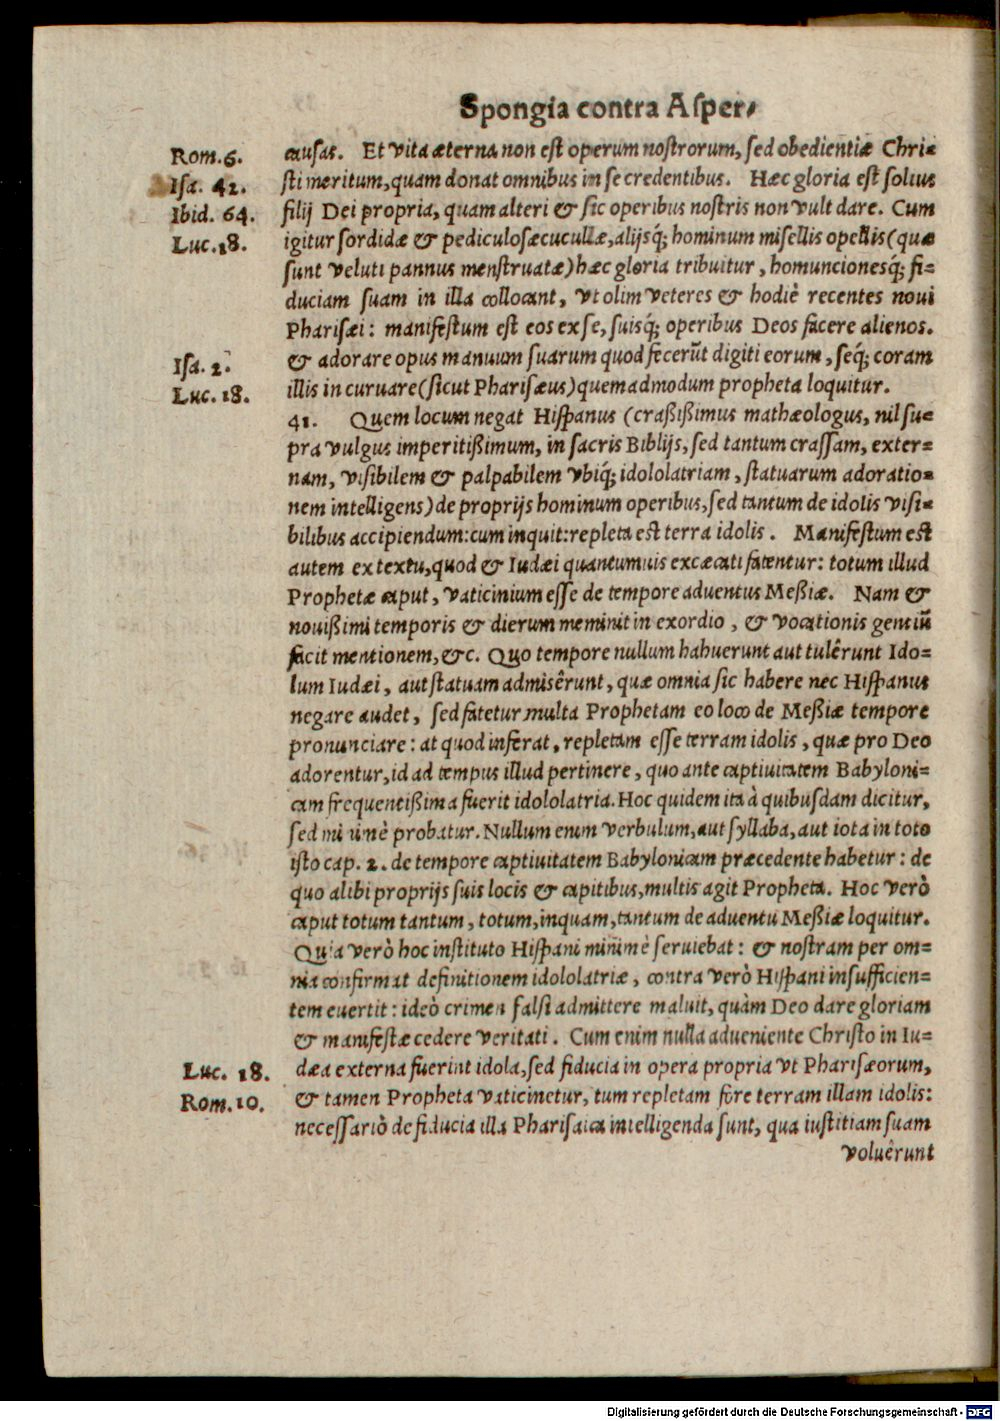 Spongia contra Aſper⸗
Rom. 6.
Iſa. 42.
Ibid. 64.
Luc. 18.
Iſa. 2.
Luc. 18.
Luc. 18.
Rom. 10.
cauſas. Et vita æterna non eſt operum noſtrorum, ſed obedientiæ Chri=
ſti meritum, quam donat omnibus in ſe credentibus. Hæc gloria eſt ſolius
filij Dei propria, quam alteri & ſic operibus noſtris non vult dare. Cum
igitur ſordidæ & pediculoſæ cucullæ, alijsq́; hominum miſellis opellis (quæ
ſunt veluti pannus menſtruatæ) hæc gloria tribuitur, homuncionesq́; fi=
duciam ſuam in illa collocant, vt olim veteres & hodiè recentes noui
Phariſæi: manifeſtum eſt eos ex ſe, ſuisq́; operibus Deos facere alienos.
& adorare opus manuum ſuarum quod fecerūt digiti eorum, ſeq́; coram
illis incuruare (ſicut Phariſæus) quemadmodum propheta loquitur.
41. Quem locum negat Hiſpanus (craßißimus mathæologus, nil ſu=
pra vulgus imperitißimum, in ſacris Biblijs, ſed tantum craſſam, exter=
nam, viſibilem & palpabilem vbiq́; idololatriam, ſtatuarum adoratio=
nem intelligens) de proprijs hominum operibus, ſed tantum de idolis viſi=
bilibus accipiendum: cum inquit: repleta eſt terra idolis. Manifeſtum eſt
autem ex textu, quod & Iudæi quantumuis excæcati fatentur: totum illud
Prophetæ caput, vaticinium eſſe de tempore aduentus Meßiæ. Nam &
nouißimi temporis & dierum meminit in exordio, & vocationis gentiū
facit mentionem, &c. Quo tempore nullum habuerunt aut tulêrunt Ido=
lum Iudæi, aut ſtatuam admiſêrunt, quæ omnia ſic habere nec Hiſpanus
negare audet, ſed fatetur multa Prophetam eo loco de Meßiæ tempore
pronunciare: at quod inferat, repletam eſſe terram idolis, quæ pro Deo
adorentur, id ad tempus illud pertinere, quo ante captiuitatem Babyloni=
cam frequentißima fuerit idololatria. Hoc quidem ita à quibuſdam dicitur,
ſed minimè probatur. Nullum enim verbulum, aut ſyllaba, aut iota in toto
iſto cap. 2. de tempore captiuitatem Babylonicam præcedente habetur: de
quo alibi proprijs ſuis locis & capitibus, multis agit Propheta. Hoc verò
caput totum tantum, totum, inquam, tantum de aduentu Meßiæ loquitur.
Quia verò hoc inſtituto Hiſpani minimè ſeruiebat: & noſtram per om=
nia confirmat definitionem idololatriæ, contra verò Hiſpani inſufficien=
tem euertit: ideò crimen falſi admittere maluit, quàm Deo dare gloriam
& manifeſtæ cedere veritati. Cum enim nulla adueniente Chriſto in Iu=
dæa externa fuerint idola, ſed fiducia in opera propria vt Phariſæorum,
& tamen Propheta vaticinetur, tum repletam fore terram illam idolis:
neceſſariò de fiducia illa Phariſaica intelligenda ſunt, qua iuſtitiam ſuam
voluêrunt
Digitalisierung gefördert durch die Deutsche Forschungsgemeinschaft - DFG